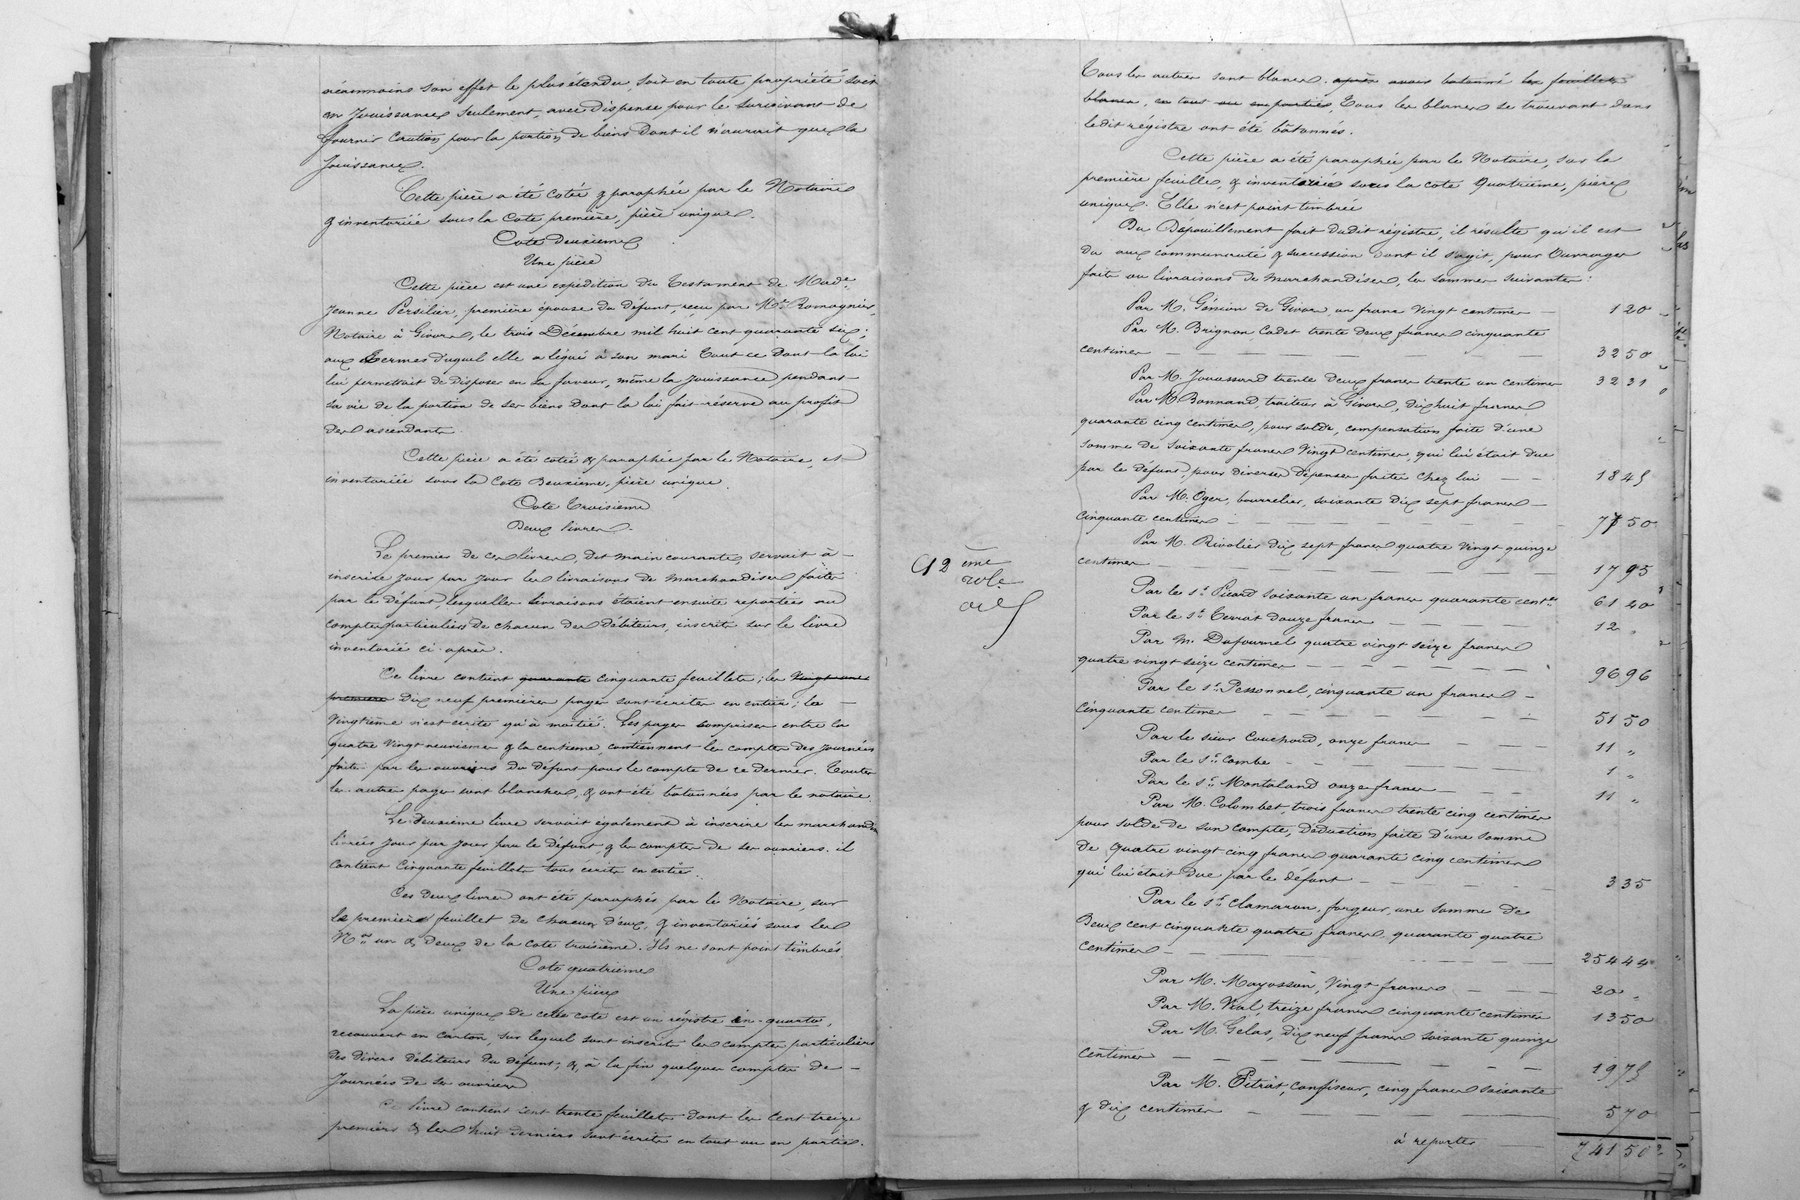 néanmoins son effet le plus étendu, soit en toute propriété soit
en Jouissance seulement, avec dispense pour le survivant de
fournir Caution pour la portion de biens dont il n'aurait que la
Jouissance.
Cette pièce a été cotée & paraphée par le Notaire
& inventoriée sous la Cote première, pièce unique.
Cote deuxième
Une pièce
Cette pièce est une expédition du Testament de Made
Jeanne Persilier, première épouse du défunt, reçu par Me Romagnier,
Notaire à Givors, le trois Décembre mil huit cent quarante six;
aux termes duquel elle a légué à son mari tout ce dont la loi
lui permettait de disposer en sa faveur, même la Jouissance pendant
sa vie de la portion de ses biens dont la loi fait réserve au profit
des ascendants.
Cette pièce a été cotée & paraphée par le Notaire, et
inventoriée sous la Cote Deuxième, pièce unique.
Cote Troisième
Deux livres.
Le premier de ces livres, dit main courante, servait à
inscrire Jour par Jour les livraisons de marchandises faites
par le défunt, lesquelles livraisons étaient ensuite reportées au
compte particulier de chacun des débiteurs, inscrit sur le livre
inventorié ci-après.
Ce livre contient quarante cinquante feuillets; les vingt
premiers Dix neuf premières pages sont écrites en entier; la
vingtième n'est écrite qu'à moitié. Les pages comprises entre la
quatre vingt neuvième & la centième, contiennent les comptes des Journées
faites par les ouvriers du défunt pour le compte de ce dernier. Toutes
les autres pages sont blanches, & ont été bâtonnées par le notaire.
Le deuxième livre servait également à inscrire les marchandises
livrées Jour par Jour par le défunt & les comptes de ses ouvriers. il
contient Cinquante feuillets tous écrits en entier.
Ces deux livres ont été paraphés par le Notaire, sur
le premier feuillet de chacun d'eux, & inventoriés sous les
Nos un & deux de la cote troisième. Ils ne sont point timbrés.
Cote quatrième
Une pièce
La pièce unique de cette cote est un régistre in-quarto,
recouvert en carton, sur lequel sont inscrits les comptes particuliers
des divers débiteurs du défunt; &, à la fin quelques comptes de
Journées de ses ouvriers
Ce livre contient cent trente feuillets dont les cent treize
premiers & les huit derniers sont écrits en tout ou en partie.
12ème
rôle
Tous les autres sont blancs. après avoir bâtonné les feuillets
blancs, en tout ou en parties, Tous les blancs se trouvant dans
ledit régistre ont été bâtonnés.
Cette pièce a été paraphée par le Notaire, sur la
première feuille, & inventoriée sous la cote Quatrième, pièce
unique. Elle n'est point timbrée
Du Dépouillement fait dudit régistre, il résulte qu'il est
dû aux communauté & succession dont il s'agit, pour Ouvrages
faits ou livraisons de marchandises, les sommes suivantes:
Par M. Génivon de Givors un franc vingt centimes — 1 20
Par M. Brignon Cadet trente deux francs cinquante
centimes — 32 50
Par M. Jouassard trente deux francs trente un centimes 32 31
Par M. Bonnand, traiteur à Givors, dix huit francs
quarante cinq centimes, pour solde, compensation faite d'une
somme de soixante francs Vingt centimes, qui lui était due
par le défunt, pour diverses dépenses faites chez lui — 18 45
Par M. Oger, bourrelier, soixante dix sept francs
Cinquante centimes — 77 50
Par M. Rivolier dix sept francs quatre vingt quinze
centimes — 17 95
Par le Sr Picard soixante un francs quarante centes 61 40
Par le Sr Terrat douze francs — 12 "
Par M. Dufournel quatre vingt seize francs
quatre vingt seize centimes — 96 96
Par le Sr Pessonnel, cinquante un francs
Cinquante centimes — 51 50
Par le sieur Couchoud, onze francs — 11 "
Par le Sr Combe — 1 "
Par le Sr Montaland onze francs — 11 "
Par M. Colombet, trois francs trente cinq centimes
pour solde de son compte, déduction faite d'une somme
de Quatre vingt cinq francs quarante cinq centimes
qui lui était due par le défunt — 3 35
Par le Sr Clamaron, forgeur, une somme de
Deux cent cinquante quatre francs quarante quatre
centimes — 254 44
Par M. Mayosson, Vingt francs — 20 "
Par M. Vial, treize francs cinquante centimes 13 50
Par M. Gélas, dix neuf francs soixante quinze
centimes — 19 75
Par M. Pitrat, confiseur, cinq francs soixante
& dix centimes — 5 70
à reporter 741 50